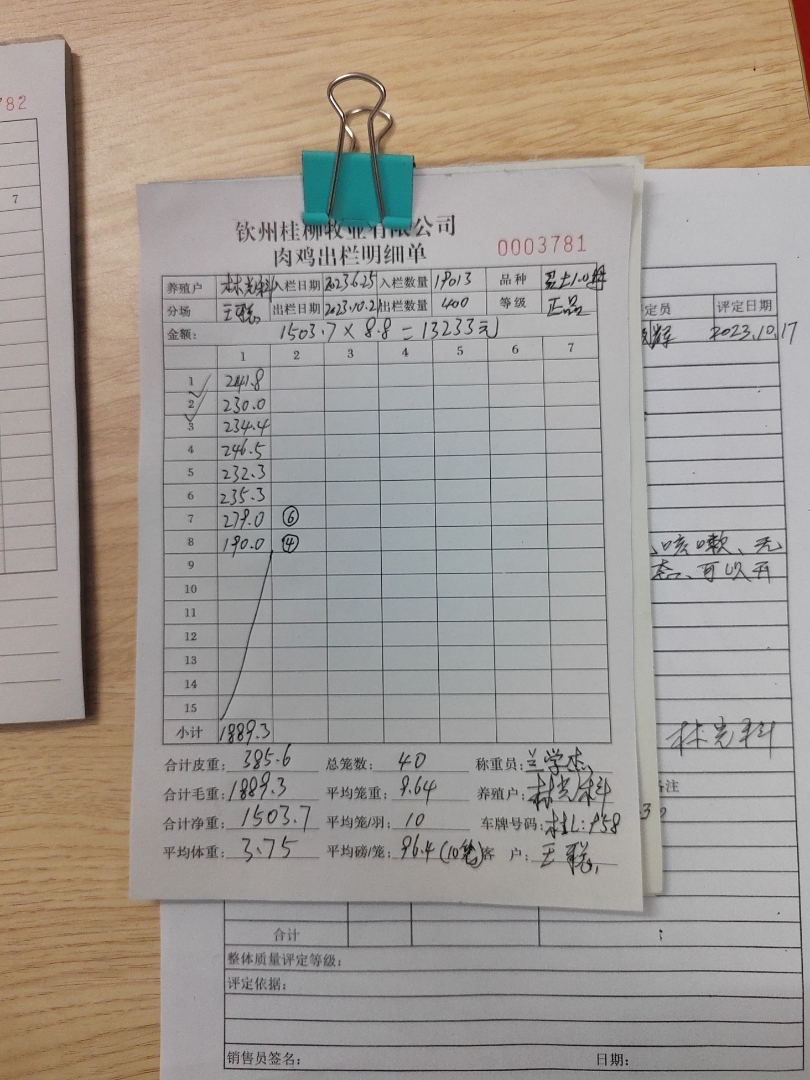 782
7
钦州桂柳牧业有限公司
肉鸡出栏明细单
0003781
养殖户 林光科 入栏日期 2023.6.25 入栏数量 19013 品种
分场 王聪 出栏日期 2023.10.21 出栏数量 400 等级 正品
金额: 1503.7 × 8.8 = 13233元
1 2 3 4 5 6 7
1 241.8
2 230.0
3 234.4
4 246.5
5 232.3
6 235.3
7 279.0 ⑥
8 190.0 ④
9
10
11
12
13
14
15
小计 1889.3
合计皮重: 385.6 总笼数: 40 称重员: 兰学杰
合计毛重: 1889.3 平均笼重: 9.64 养殖户: 林光科
合计净重: 1503.7 平均笼/羽: 10 车牌号码: 桂L:P58
平均体重: 3.75 平均磅/笼: 96.4 (10笼) 客 户: 王聪
定员 评定日期
2023.10.17
咳嗽、无
态、可以开
林光科
注
合计
整体质量评定等级:
评定依据:
销售员签名: 日期: